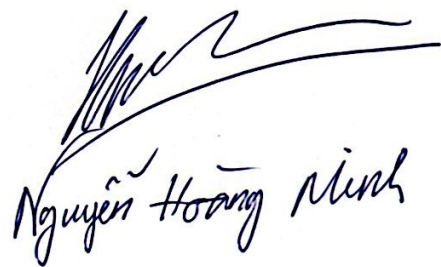 Nguyễn Hoàng Minh